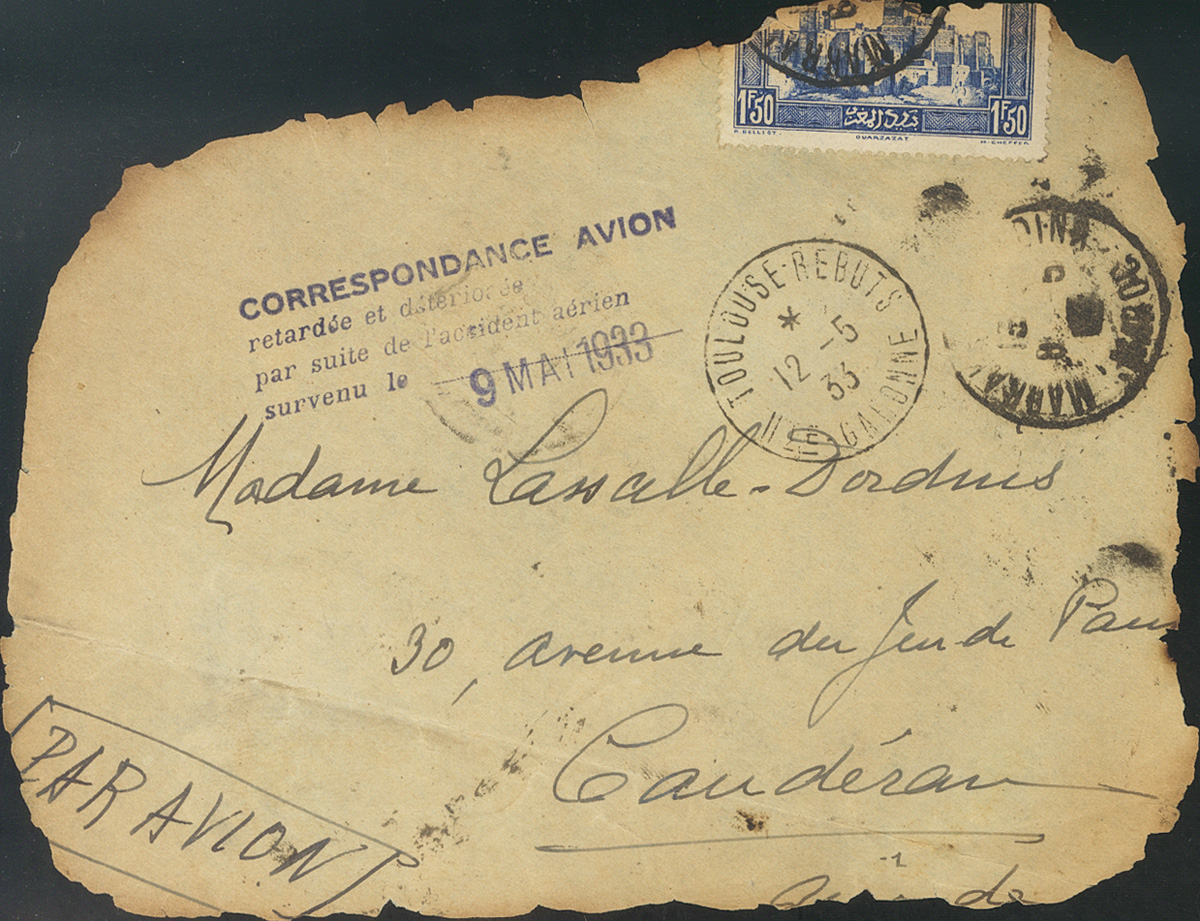 MARRA
1F50 بريد المغرب 1F50
R. BELLIOT. OUARZAZAT H. CHEFFER
CORRESPONDANCE AVION
retardée et détériorée
par suite de l'accident aérien
survenu le 9 MAI 1933
TOULOUSE-REBUTS
* 12 -5
33
HTE GARONNE
MARRA MAROC
Madame Lassalle-Dordins
30, avenue du Jeu de Paum
Caudéran
PAR AVION